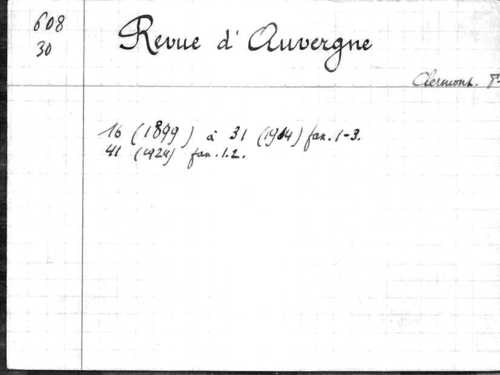 608
30
Revue d'Auvergne
Clermont.
16 (1899) à 31 (1914) fasc. 1-3.
41 (1924) fasc. 1.2.